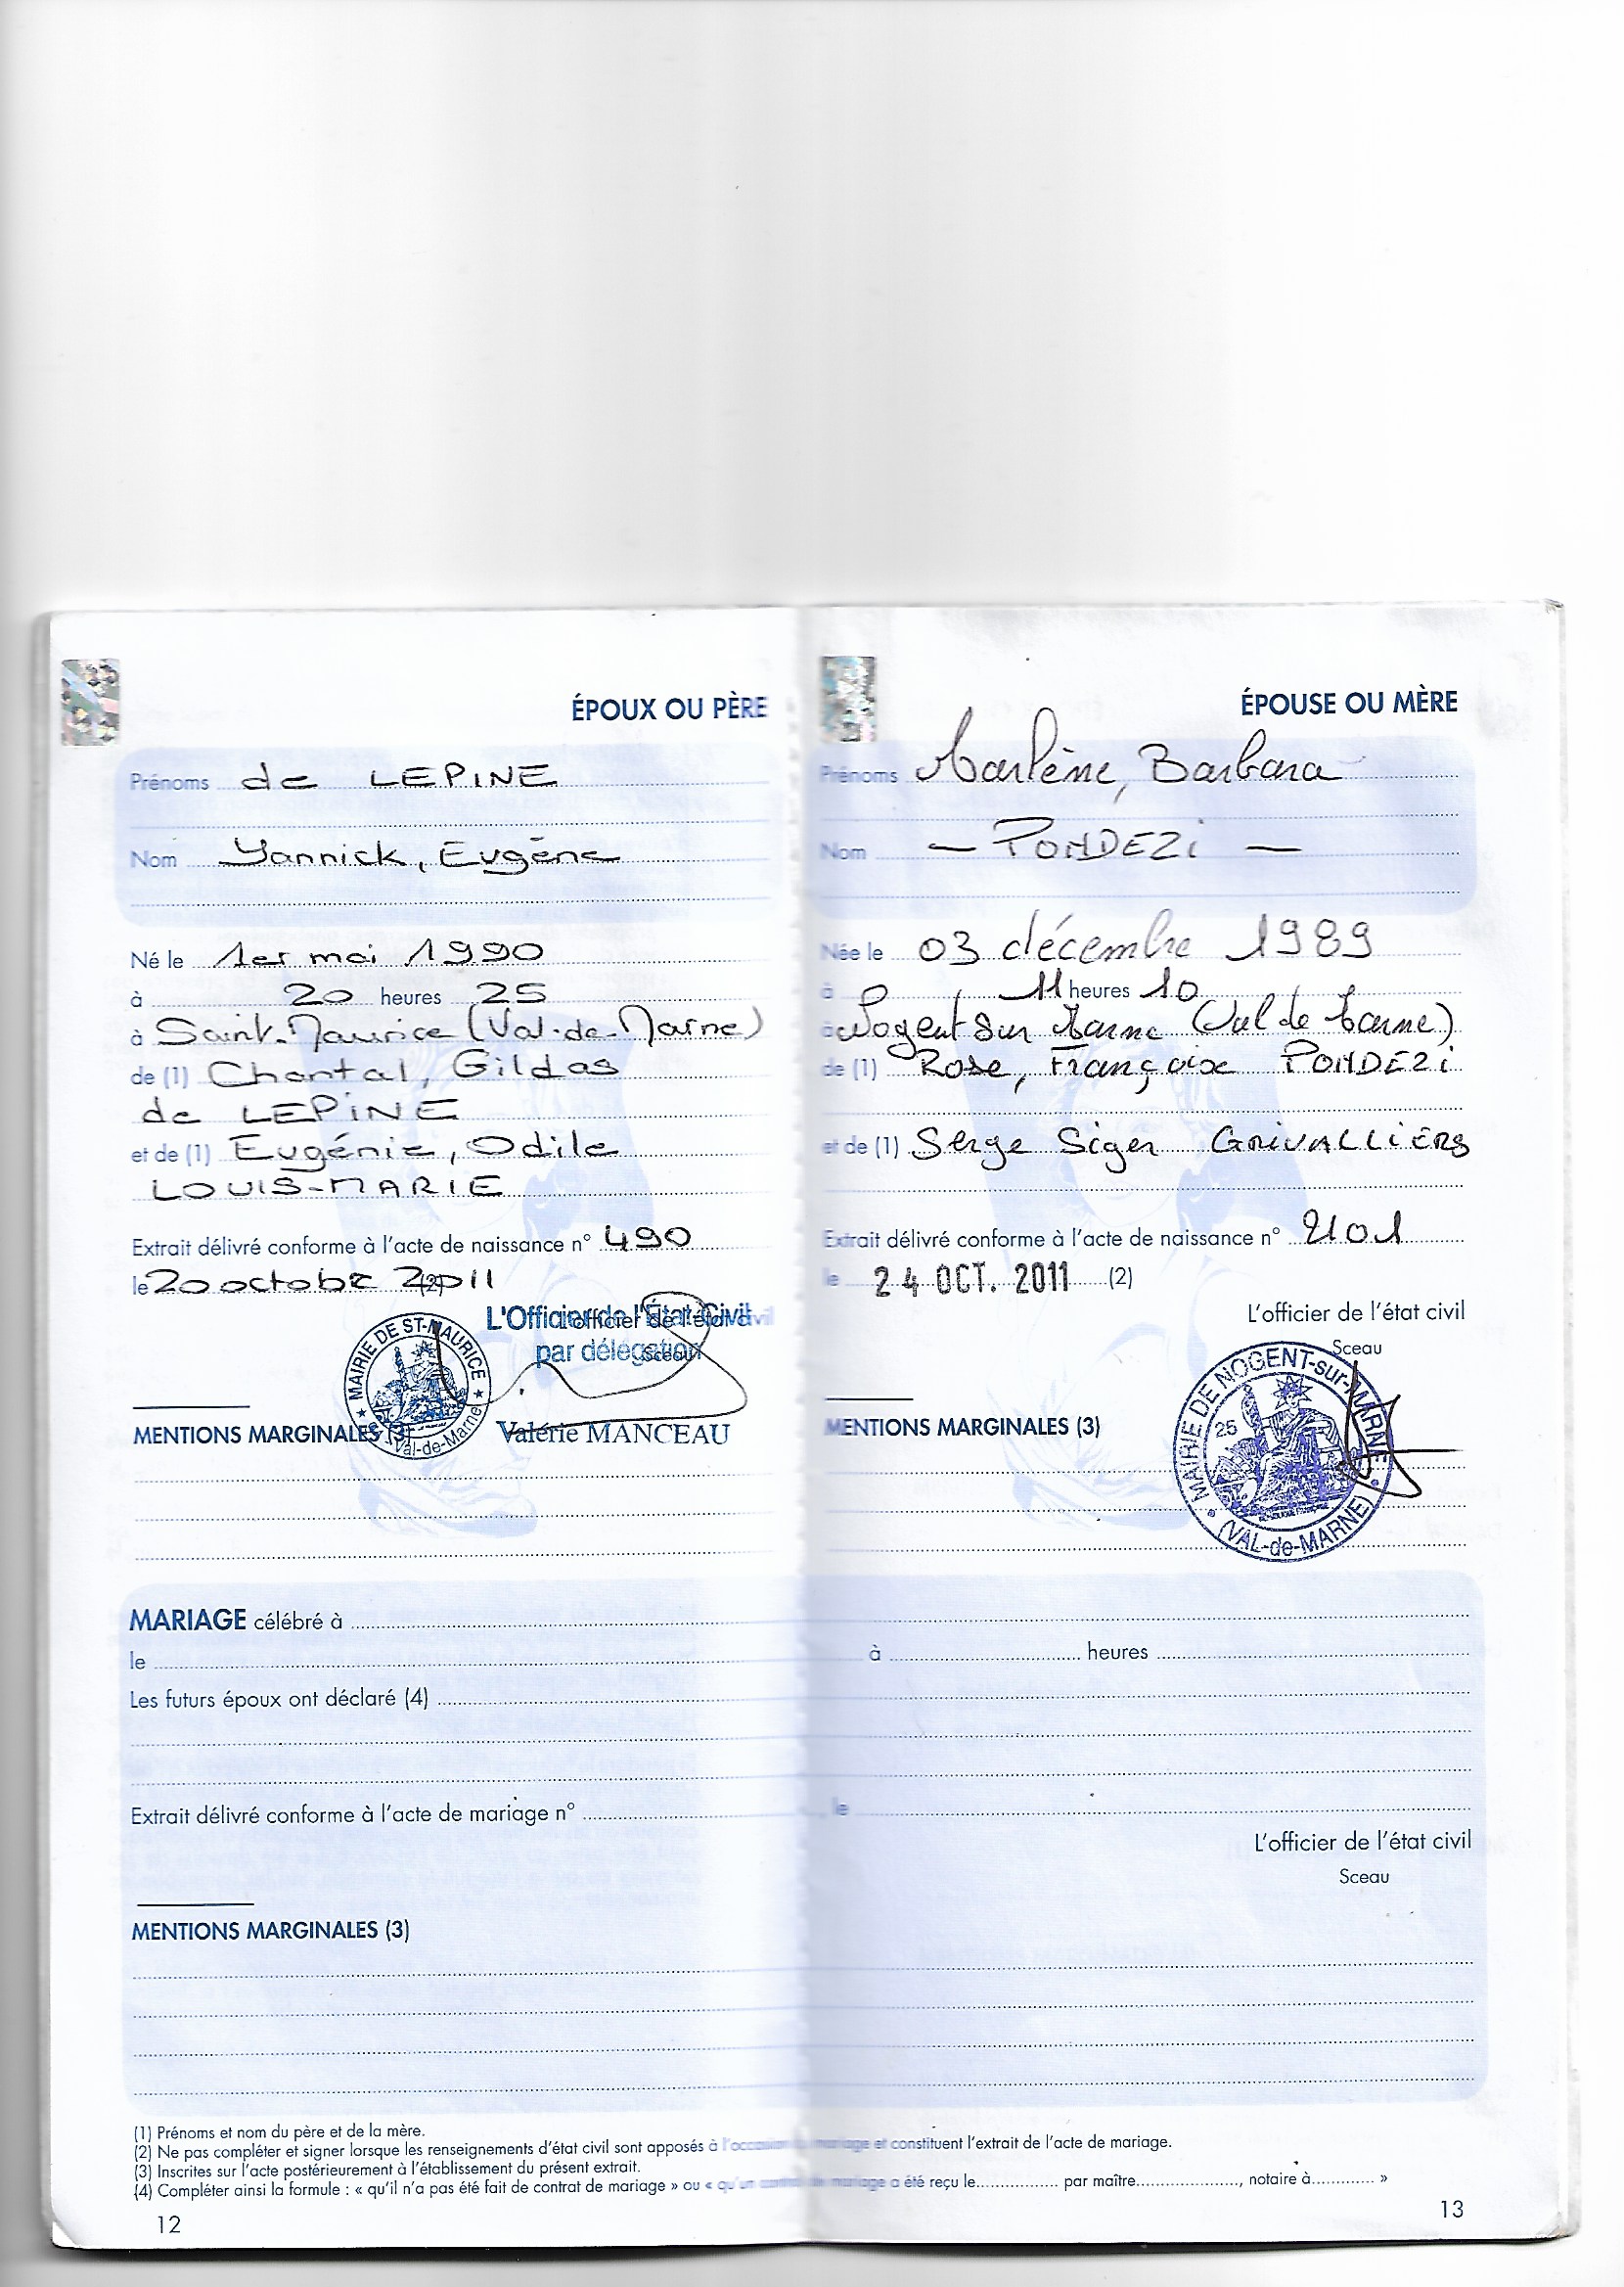 ÉPOUX OU PÈRE
Prénoms de LEPINE
Nom Yannick, Eugène
Né le 1er mai 1990
à 20 heures 25
à Saint-Maurice (Val-de-Marne)
de (1) Chantal, Gildas
de LEPINE
et de (1) Eugénie, Odile
LOUIS-MARIE
Extrait délivré conforme à l'acte de naissance n° 490
le 20 octobre 2011 (2)
L'Officier de l'État-Civil
par délégation
L'officier de l'état civil
Sceau
MAIRIE DE ST-MAURICE
(Val-de-Marne)
Valérie MANCEAU
MENTIONS MARGINALES (3)
ÉPOUSE OU MÈRE
Prénoms Marlène, Barbara
Nom — PONDEZI —
Née le 03 décembre 1989
à 11 heures 10
à Nogent sur Marne (Val de Marne)
de (1) Rose, Françoise PONDEZI
et de (1) Serge Siger GRIVALLIERS
Extrait délivré conforme à l'acte de naissance n° 2101
le 24 OCT. 2011 (2)
L'officier de l'état civil
Sceau
MAIRIE DE NOGENT-sur-MARNE
25
(VAL-de-MARNE)
MENTIONS MARGINALES (3)
MARIAGE célébré à
le à heures
Les futurs époux ont déclaré (4)
Extrait délivré conforme à l'acte de mariage n° , le
L'officier de l'état civil
Sceau
MENTIONS MARGINALES (3)
(1) Prénoms et nom du père et de la mère.
(2) Ne pas compléter et signer lorsque les renseignements d'état civil sont apposés à l'occasion du mariage et constituent l'extrait de l'acte de mariage.
(3) Inscrites sur l'acte postérieurement à l'établissement du présent extrait.
(4) Compléter ainsi la formule : « qu'il n'a pas été fait de contrat de mariage » ou « qu'un contrat de mariage a été reçu le................. par maître....................., notaire à............. »
12
13